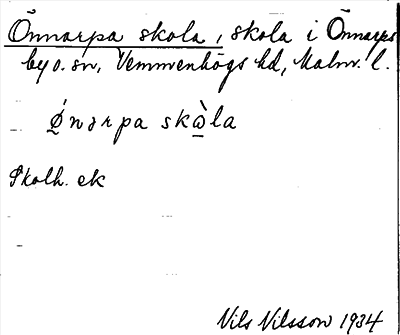 Önnarpa skola, skola i Önnarps
by o. sn, Vemmenhögs hd, Malm. l.
Ǿnarpa skὼla
Skolh. ek
Nils Nilsson 1934